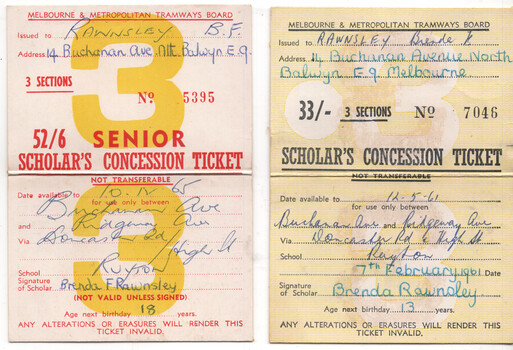 MELBOURNE & METROPOLITAN TRAMWAYS BOARD
Issued to RAWNSLEY B.F.
Address 14 Buchanan Ave Nth. Balwyn E.9
3
3 SECTIONS
No 5395
52/6 SENIOR
SCHOLAR'S CONCESSION TICKET
NOT TRANSFERABLE
Date available to 10.IV 65
for use only between
Buchanan Ave
and Ridgeway Ave
Via Doncaster Rd High St
School Ruyton
Signature of Scholar Brenda F Rawnsley
(NOT VALID UNLESS SIGNED)
Age next birthday 18 years.
ANY ALTERATIONS OR ERASURES WILL RENDER THIS
TICKET INVALID.
3
MELBOURNE & METROPOLITAN TRAMWAYS BOARD
Issued to RAWNSLEY Brenda F
Address 14 Buchanan Avenue North
Balwyn E.9 Melbourne
33/- 3 SECTIONS No 7046
3
SCHOLAR'S CONCESSION TICKET
NOT TRANSFERABLE
Date available to 12-5-61
for use only between
Buchanan Ave and Ridgeway Ave
Via Doncaster Rd & High St
School Ruyton
7th February 1961 Date
Signature of Scholar Brenda Rawnsley.
Age next birthday 13 years.
ANY ALTERATIONS OR ERASURES WILL RENDER THIS
TICKET INVALID.
3